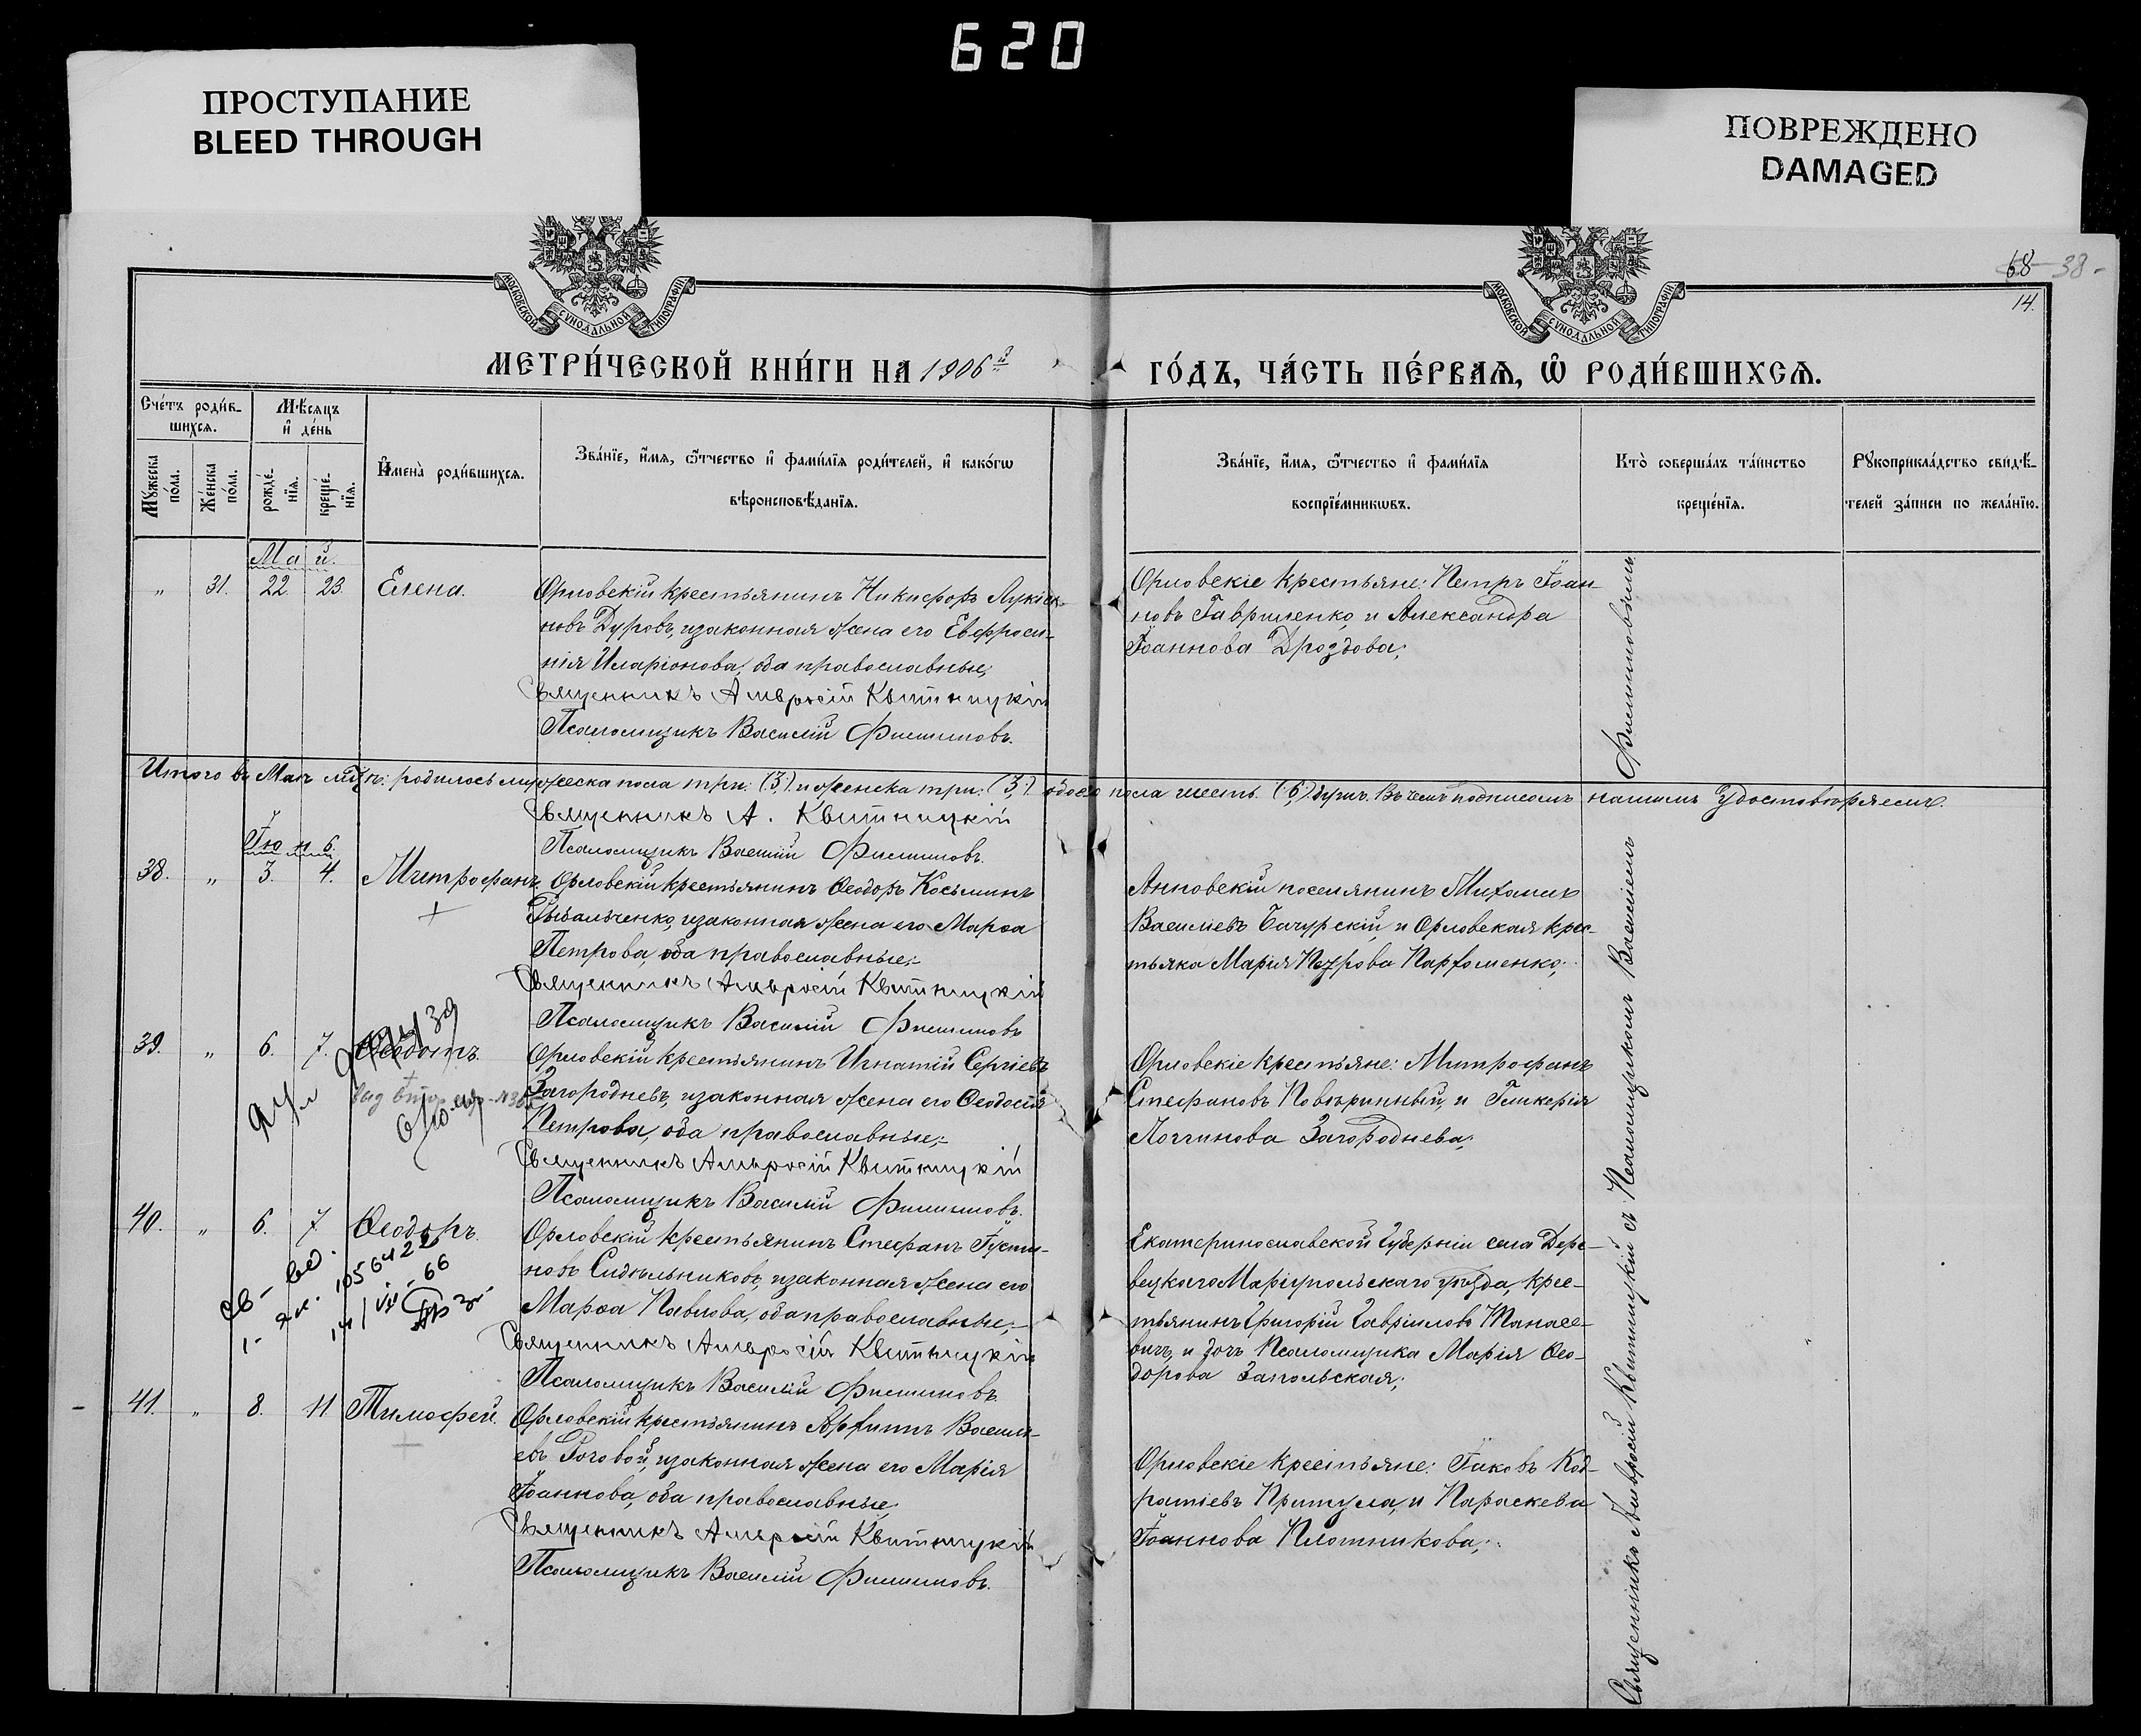 620
ПРОСТУПАНИЕ
BLEED THROUGH
ПОВРЕЖДЕНО
DAMAGED
68 38
14.
МОСКОВСКОЙ СѴНОДАЛЬНОЙ ТИПОГРАФІИ
МОСКОВСКОЙ СѴНОДАЛЬНОЙ ТИПОГРАФІИ
МЕТРИ́ЧЕСКОЙ КНИ́ГИ НА 1906й
ГО́ДЪ, ЧА́СТЬ ПЕ́РВАѦ, Ѽ РОДИ́ВШИХСѦ.
Сче́тъ роди́в-
шихсѧ.
Мꙋ́жеска по́ла.
Же́нска по́ла.
Мѣ́сѧцъ
и҆ де́нь
рожде́-
нїѧ.
креще́-
нїѧ.
И҆мена̀ роди́вшихсѧ.
Зва́нїе, и҆́мѧ, ѻ҆́тчество и҆ фами́лїѧ роди́телей, и҆ како́гѡ
вѣроисповѣ́данїѧ.
Зва́нїе, и҆́мѧ, ѻ҆́тчество и҆ фами́лїѧ
воспрїе́мникѡвъ.
Кто̀ соверша́лъ та́инство
креще́нїѧ.
Рꙋкоприкла́дство свидѣ́-
телей за́писи по жела́нїю.
Май.
„ 31. 22. 23. Елена.
Орловскій крестьянинъ Никифоръ Лукіа-
новъ Дуровъ, и законная жена его Евфроси-
нія Иларіонова, оба православные;
Священникъ Амвросій Квитницкій
Псаломщикъ Василій Филипповъ.
Орловскіе крестьяне: Петръ Іоан-
новъ Гавриленко, и Александра
Іоаннова Дроздова;
Итого въ Маѣ мѣсяцѣ: родилось мужеска пола три: (3;) и женска три: (3;) обоего пола шесть. (6;) душъ. Въ чемъ подписомъ нашимъ удостовѣряемъ.
Священникъ А. Квитницкій
Псаломщикъ Василій Филипповъ.
Іюнь.
38. „ 3. 4. Митрофанъ.
Орловскій крестьянинъ Ѳеодоръ Косьминъ
Рыбальченко, и законная жена его Марѳа
Петрова, оба православные;-
Священникъ Амвросій Квитницкій
Псаломщикъ Василій Филипповъ
Анновскій поселянинъ Михаилъ
Василіевъ Бачурскій, и Орловская крес-
тьяка Марія Петрова Пархоменко;
39. „ 6. 7. Ѳеодотъ.
Орловскій крестьянинъ Игнатій Сергіевъ
Загородневъ, и законная жена его Ѳеодосія
Петрова, оба православные;-
Священникъ Амвросій Квитницкій
Псаломщикъ Василій Филипповъ.
Орловскіе крестьяне: Митрофанъ
Стефановъ Повѣринный, и Гликерія
Логгинова Загороднева;
40. „ 6. 7. Ѳеодоръ.
1056422
66
Орловскій крестьянинъ Стефанъ Іусти-
новъ Сидѣльниковъ, и законная жена его
Марѳа Павлова, оба православные;-
Священникъ Амвросій Квитницкій
Псаломщикъ Василій Филипповъ.
Екатеринославской Губерніи села Дере-
вецкаго Маріупольскаго уѣзда, крес-
тьянинъ Григорій Гавріиловъ Танасе-
вичъ, и дочь Псаломщика Марія Ѳео-
дорова Запольская;
41. „ 8. 11 Тимофей.
Орловскій крестьянинъ Архипъ Васили-
евъ Роговой, и законная жена его Марія
Іоаннова, оба православные;
Священникъ Амвросій Квитницкій
Псаломщикъ Василій Филипповъ.
Орловскіе крестьяне: Іаковъ Код-
ратіевъ Притула, и Параскева
Іоаннова Плотникова;
Священникъ Амвросій Квитницкій съ Псаломщикомъ Василіемъ Филипповымъ